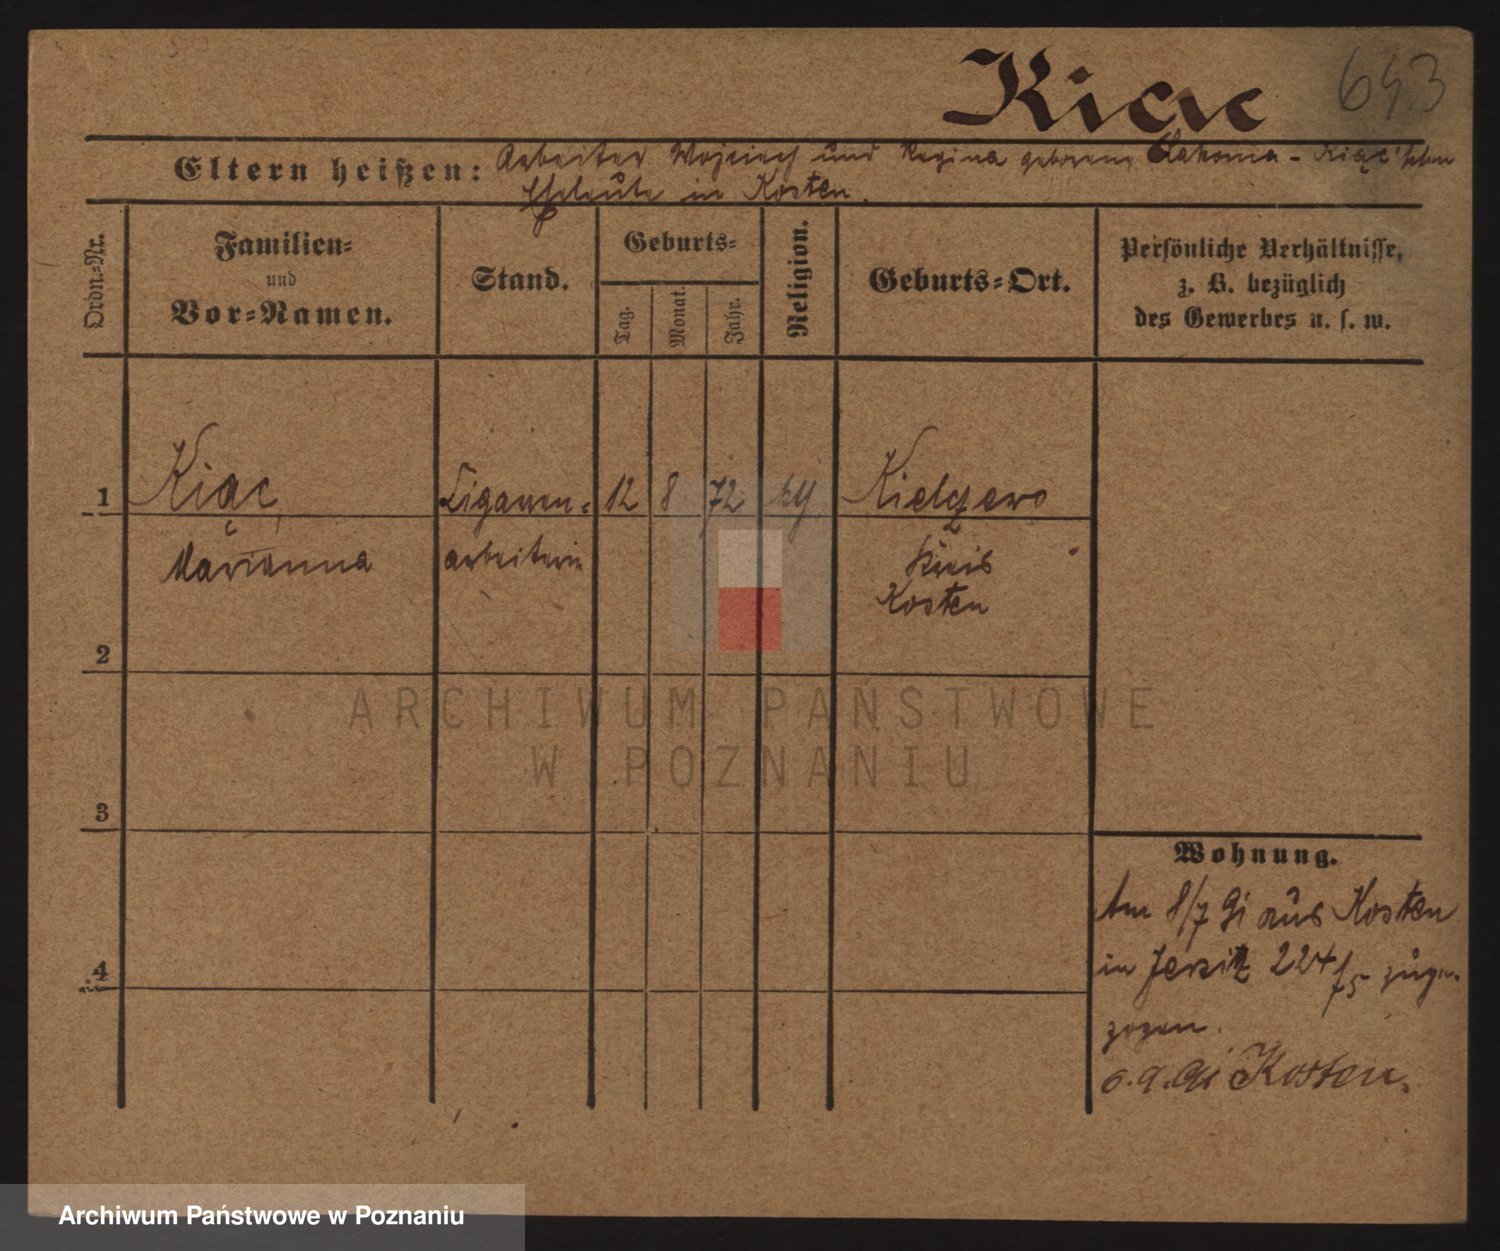 Kiąc 643
Eltern heißen: Arbeiter Wojciech und Regina geborene Łakoma - Kiąc'schen
Eheleute in Kosten.
Ordn.=Nr.
Familien=
und
Vor=Namen.
Stand.
Geburts=
Tag.
Monat.
Jahr.
Religion.
Geburts=Ort.
Persönliche Verhältnisse,
z. B. bezüglich
des Gewerbes u. s. w.
1 Kiąc, Cigarren= 12 8 72 Kielczewo
Marianna arbeiterin Kreis
Kosten
2
ARCHIWUM PAŃSTWOWE
W POZNANIU
3
Wohnung.
Am 8/7 91 aus Kosten
4 in Jersitz 224/5 zuge-
zogen.
6.9.91 Kosten.
Archiwum Państwowe w Poznaniu